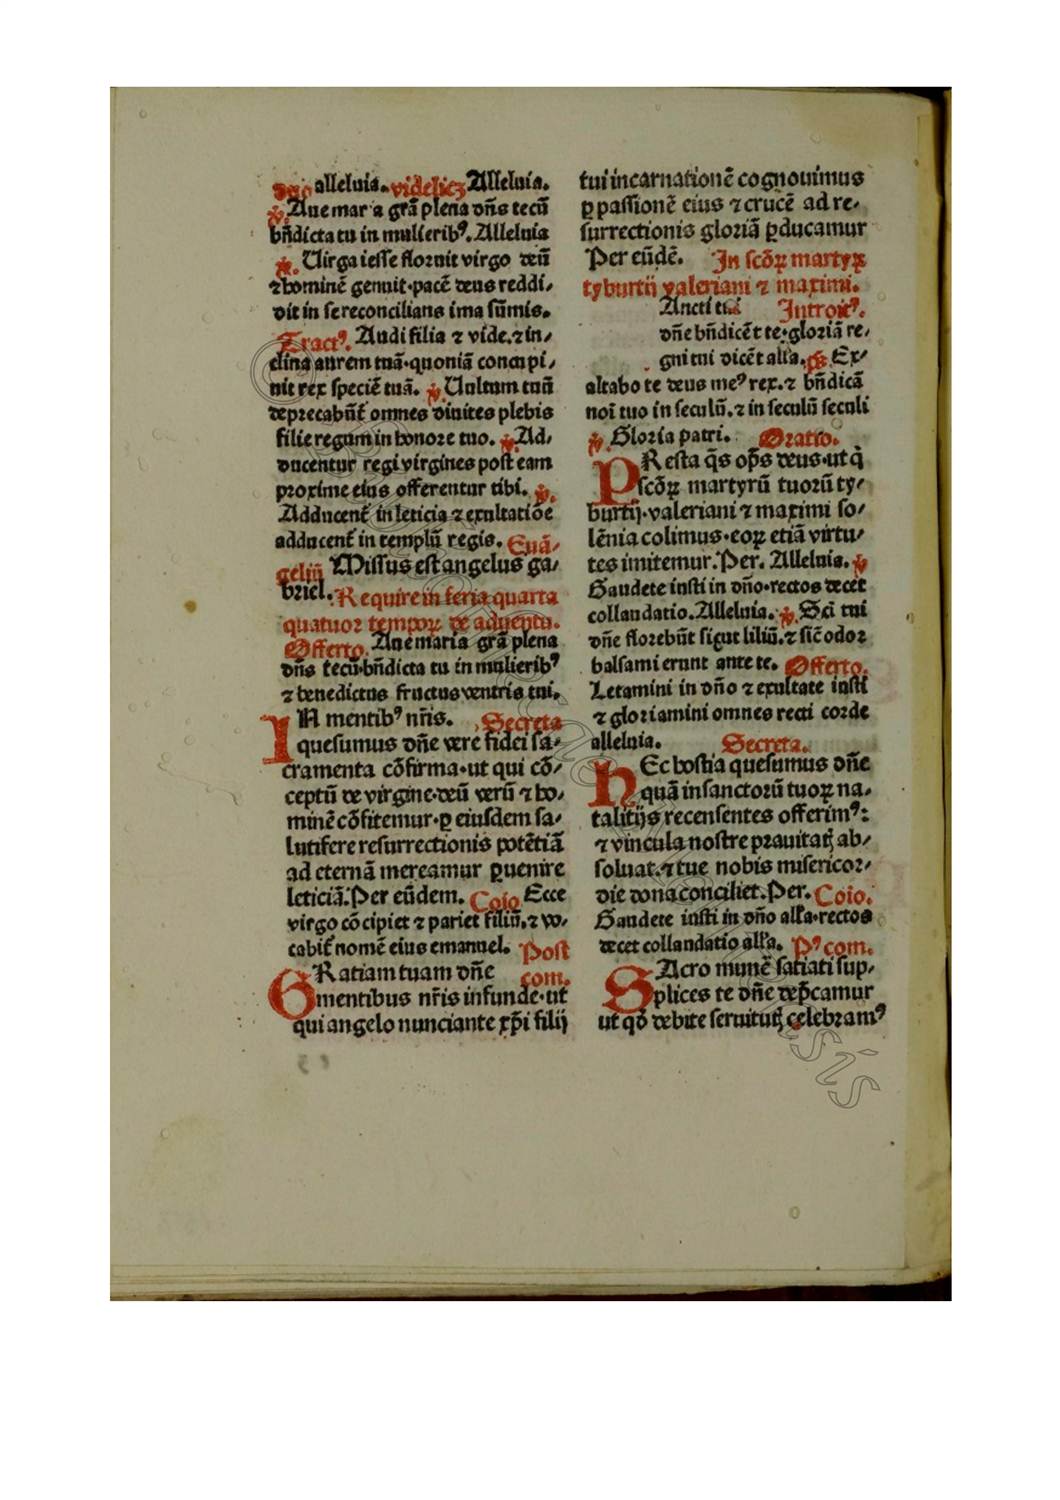 duo alleluia. videlicꝫ Alleluia.
℣. Aue mar a grā plena dn̄s tecū
bn̄dicta tu in mulieribꝰ. Alleluia
℣. Uirga iesse floruit virgo deū
⁊ hominē genuit·pacē deus reddi⸗
dit in se reconcilians ima sūmis.
Tractꝰ. Audi filia ⁊ vide.⁊ in⸗
clina aurem tuā·quoniā concupi⸗
uit rex speciē tuā. ℣. Uultum tuū
deprecabūt̄ omnes diuites plebis
filie regum in honore tuo. ℣. Ad⸗
ducentur regi virgines post eam
proxime eius offerentur tibi. ℣.
Adducent̄ in leticia ⁊ exultatiōe
adducent̄ in templū regis. Euā⸗
geliū Missus est angelus ga⸗
briel. Require in feria quarta
quatuor tempoꝝ de aduentu.
Offerto. Aue maria grā plena
dn̄s tecū·bn̄dicta tu in mulieribꝰ
⁊ benedictus fructus ventris tui.
IN mentibꝰ nr̄is. Secreta
quesumus dn̄e vere fidei sa⸗
cramenta cōfirma·ut qui cō⸗
ceptū de virgine·deū verū ⁊ ho⸗
minē cōfitemur·ꝑ eiusdem sa⸗
lutifere resurrectionis potētiā
ad eternā mereamur ꝑuenire
leticiā. Per eūdem. Coīo Ecce
virgo cōcipiet ⁊ pariet filiū.⁊ vo⸗
cabit̄ nomē eius emanuel. Post
GRatiam tuam dn̄e com.
mentibus nr̄is infunde·ut
qui angelo nunciante xp̄i filij
tui incarnationē cognouimus
ꝑ passionē eius ⁊ crucē ad re⸗
surrectionis gloriā ꝑducamur
Per eūdē. In scōꝝ martyꝝ
tyburtij valeriani ⁊ maximi.
Ancti tui Introitꝰ.
dn̄e bn̄dicēt te·gloriā re⸗
gni tui dicēt all'a. ps̄. Ex⸗
altabo te deus meꝰ rex.⁊ bn̄dicā
noī tuo in seculū.⁊ in seculū seculi
℣. Gloria patri. Oratio.
PResta q̄s op̄s deus·ut q̄
scōꝝ martyrū tuorū ty⸗
burtij·valeriani ⁊ maximi so⸗
lēnia colimus·eoꝝ etiā virtu⸗
tes imitemur. Per. Alleluia. ℣
Gaudete iusti in dn̄o·rectos decet
collaudatio. Alleluia. ℣. Sc̄i tui
dn̄e florebūt sicut liliū.⁊ sic̄ odor
balsami erunt ante te. Offerto.
Letamini in dn̄o ⁊ exultate iusti
⁊ gloriamini omnes recti corde
alleluia. Secreta.
hEc hostia quesumus dn̄e
quā in sanctorū tuoꝝ na⸗
talitijs recensentes offerimꝰ:
⁊ vincula nostre prauitatꝭ ab⸗
soluat.⁊ tue nobis misericor⸗
die dona conciliet. Per. Coīo.
Gaudete iusti in dn̄o all'a·rectos
decet collaudatio all'a. Pꝰcom.
SAcro munē satiati sup⸗
plices te dn̄e dep̄camur
ut qd̄ debite seruitutꝭ celebramꝰ